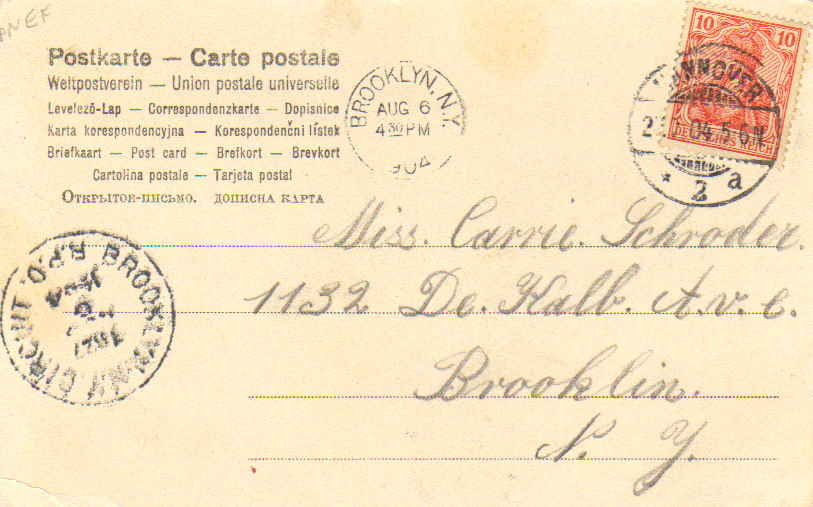 PNEF
Postkarte — Carte postale
Weltpostverein — Union postale universelle
Levelező-Lap — Correspondenzkarte — Dopisnice
Karta korespondencyjna — Korespondenčni lístek
Briefkaart — Post card — Brefkort — Brevkort
Cartolina postale — Tarjeta postal
Открытое-письмо. дописна карта
BROOKLYN, N.Y.
AUG 6
4 30 PM
1904
10 10
DEUTSCHES REICH
HANNOVER
04. 5-6 N.
* 2 a
Miss. Carrie. Schroder.
1132 De. Kalb. A.v.e.
Brooklin.
N. Y.
BROOKLYN, N.Y. CIRCUIT R.P.O.